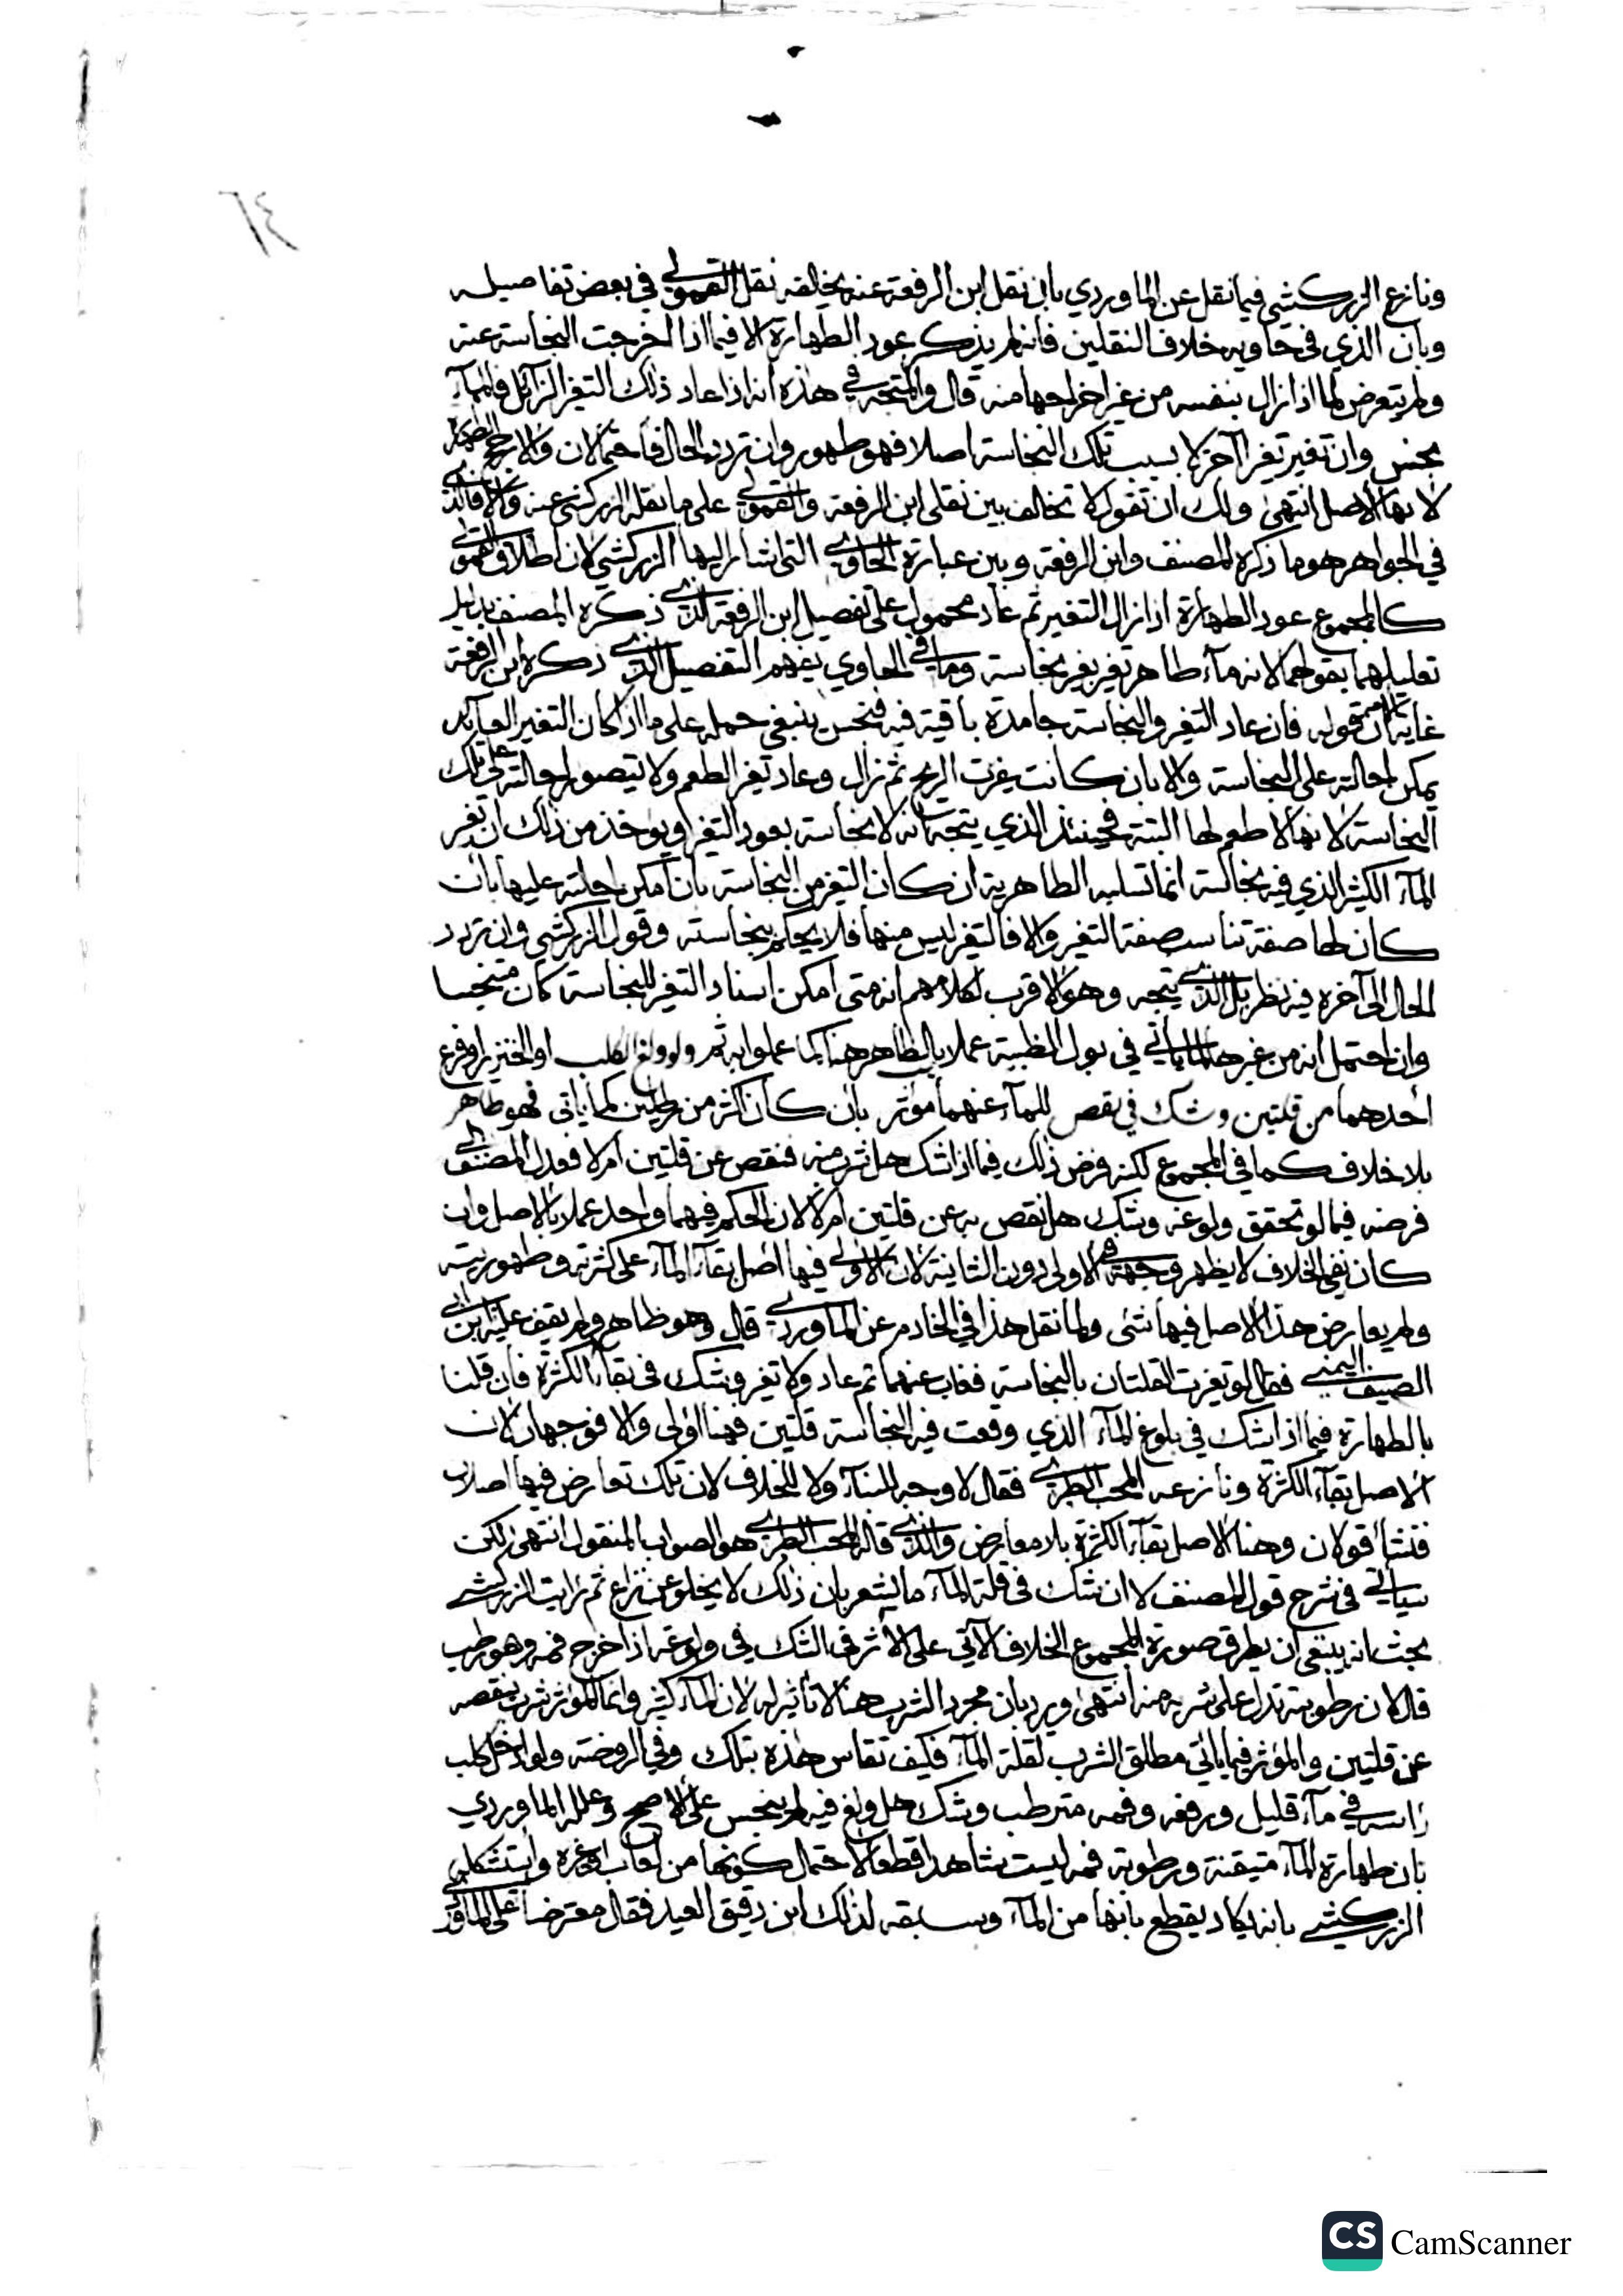 ٦٤
ونازع الزركشي فيما نقل عن الماوردي بان نقل ابن الرفعة عنه يخالفه نقل القمولي في بعض تفاصيله
وبان الذي في حاويه خلاف النقلين فانه لم يذكر عود الطهارة الا فيما اذا اخرجت النجاسة عنه
ولم يتعرض لما اذا زال بنفسه من غير اخراجها منه قال والمتجه في هذه انه اذا عاد ذلك التغير الزائل فالمآء
نجس وان تغير تغيرا آخر لا بسبب تلك النجاسة اصلا فهو طهور وان تردد الحال فاحتمالان والارجح الطهارة
لانها الاصل انتهى ولك ان تقول لا تخالف بين نقلي ابن الرفعة والقمولي على ما نقله الزركشي عنه والا فالذي
في الجواهر هو ما ذكره المصنف وابن الرفعة وبين عبارة الحاوي التي اشار اليها الزركشي لان اطلاق القمولي
كالمجموع عود الطهارة اذا زال التغير ثم عاد محمول على تفصيل ابن الرفعة الذي ذكره المصنف بدليل
تعليلهما بقولهما لانه مآء طاهر تغير بغير نجاسة وما في الحاوي يفهم التفصيل الذي ذكره ابن الرفعة
غايته ان قوله فان عاد التغير والنجاسة جامدة باقية فيه فنجس ينبغي حمله على ما اذا كان التغير العآيد
يمكن احالته على النجاسة والا بان كانت غيرت الريح ثم زال وعاد تغير الطعم ولا يتصور احالته على تلك
النجاسة لانها لا طعم لها البتة فحينئذ الذي يتجه انه لا نجاسة بعود التغير ويوخذ من ذلك ان تغير
المآء الكثير الذي فيه نجاسة انما تسلبه الطاهرية ان كان التغير من النجاسة بان امكن احالته عليها بان
كان لها صفة تناسب صفة التغير والا فالتغير ليس منها فلا يحكم بنجاسته وقول الزركشي وان تردد
الحال الى آخره فيه نظر بل الذي يتجه وهو الاقرب لكلامهم انه متى امكن اسناد التغير للنجاسة كان متنجسا
وان احتمل انه من غيرها لما ياتي في بول الظبية عملا بالظاهر هنا كما عملوا به ثم ولو ولغ الكلب او الخنزير او فرع
احدهما من قلتين وشك في نقص للمآء عنهما موثر بان كان اكثر من رطلين كما ياتي فهو طاهر
بلا خلاف كما في المجموع لكنه فرض ذلك فيما اذا شك هل شرب منه فنقص عن قلتين ام لا فعدل المصنف الى
فرضه فيما لو تحقق ولوغه وشك هل نقص به عن قلتين ام لا لان الحكم فيهما واحد عملا بالاصل وان
كان نفي الخلاف لا يظهر وجهه في الاولى دون الثانية لان الاولى فيها اصل بقآء المآء على كثرته وطهوريته
ولم يعارض هذا الاصل فيها شئ ولما نقل هذا في الخادم عن الماوردي قال وهو ظاهر ولم يقف عليه ابن ابي
الصيف اليمني فقال لو تغيرت القلتان بالنجاسة فغاب عنهما ثم عاد ولا تغير وشك في بقآء الكثرة فان قلنا
بالطهارة فيما اذا شك في بلوغ المآء الذي وقعت فيه النجاسة قلتين فهنا اولى والا فوجهان لان
الاصل بقآء الكثرة ونازعه المحب الطبري فقال لا وجه للبنآء ولا للخلاف لان تلك تعارض فيها اصلان
فنشأ قولان وهنا الاصل بقآء الكثرة بلا معارض والذي قاله المحب الطبري هو الصواب المنقول انتهى لكن
سياتي في شرح قول المصنف لا ان شك في قلة المآء ما يشعر بان ذلك لا يخلو عن نزاع ثم رايت الزركشي
بحث انه ينبغي ان يطرق صورة المجموع الخلاف الآتي على الاثر في الشك في ولوغه اذا خرج فمه وهو رطب
قال لان رطوبته تدل على شربه منه انتهى ويرد بان مجرد الشرب هنا لا تاثير له لان المآء كثير وانما الموثر شرب ينقصه
عن قلتين والموثر فيما ياتي مطلق الشرب لقلة المآء فكيف تقاس هذه بتلك وفي الروضة ولو ادخل كلب
راسه في مآء قليل ورفعه وفمه مترطب وشك هل ولغ فيه لم ينجس على الاصح وعلله الماوردي
بان طهارة المآء متيقنة ورطوبة فمه ليست شاهدا قطعا لاحتمال كونها من لعاب او غيره واستشكله
الزركشي بانه يكاد يقطع بانها من المآء وسبقه لذلك ابن دقيق العيد فقال معترضا على الماوردي
CS CamScanner